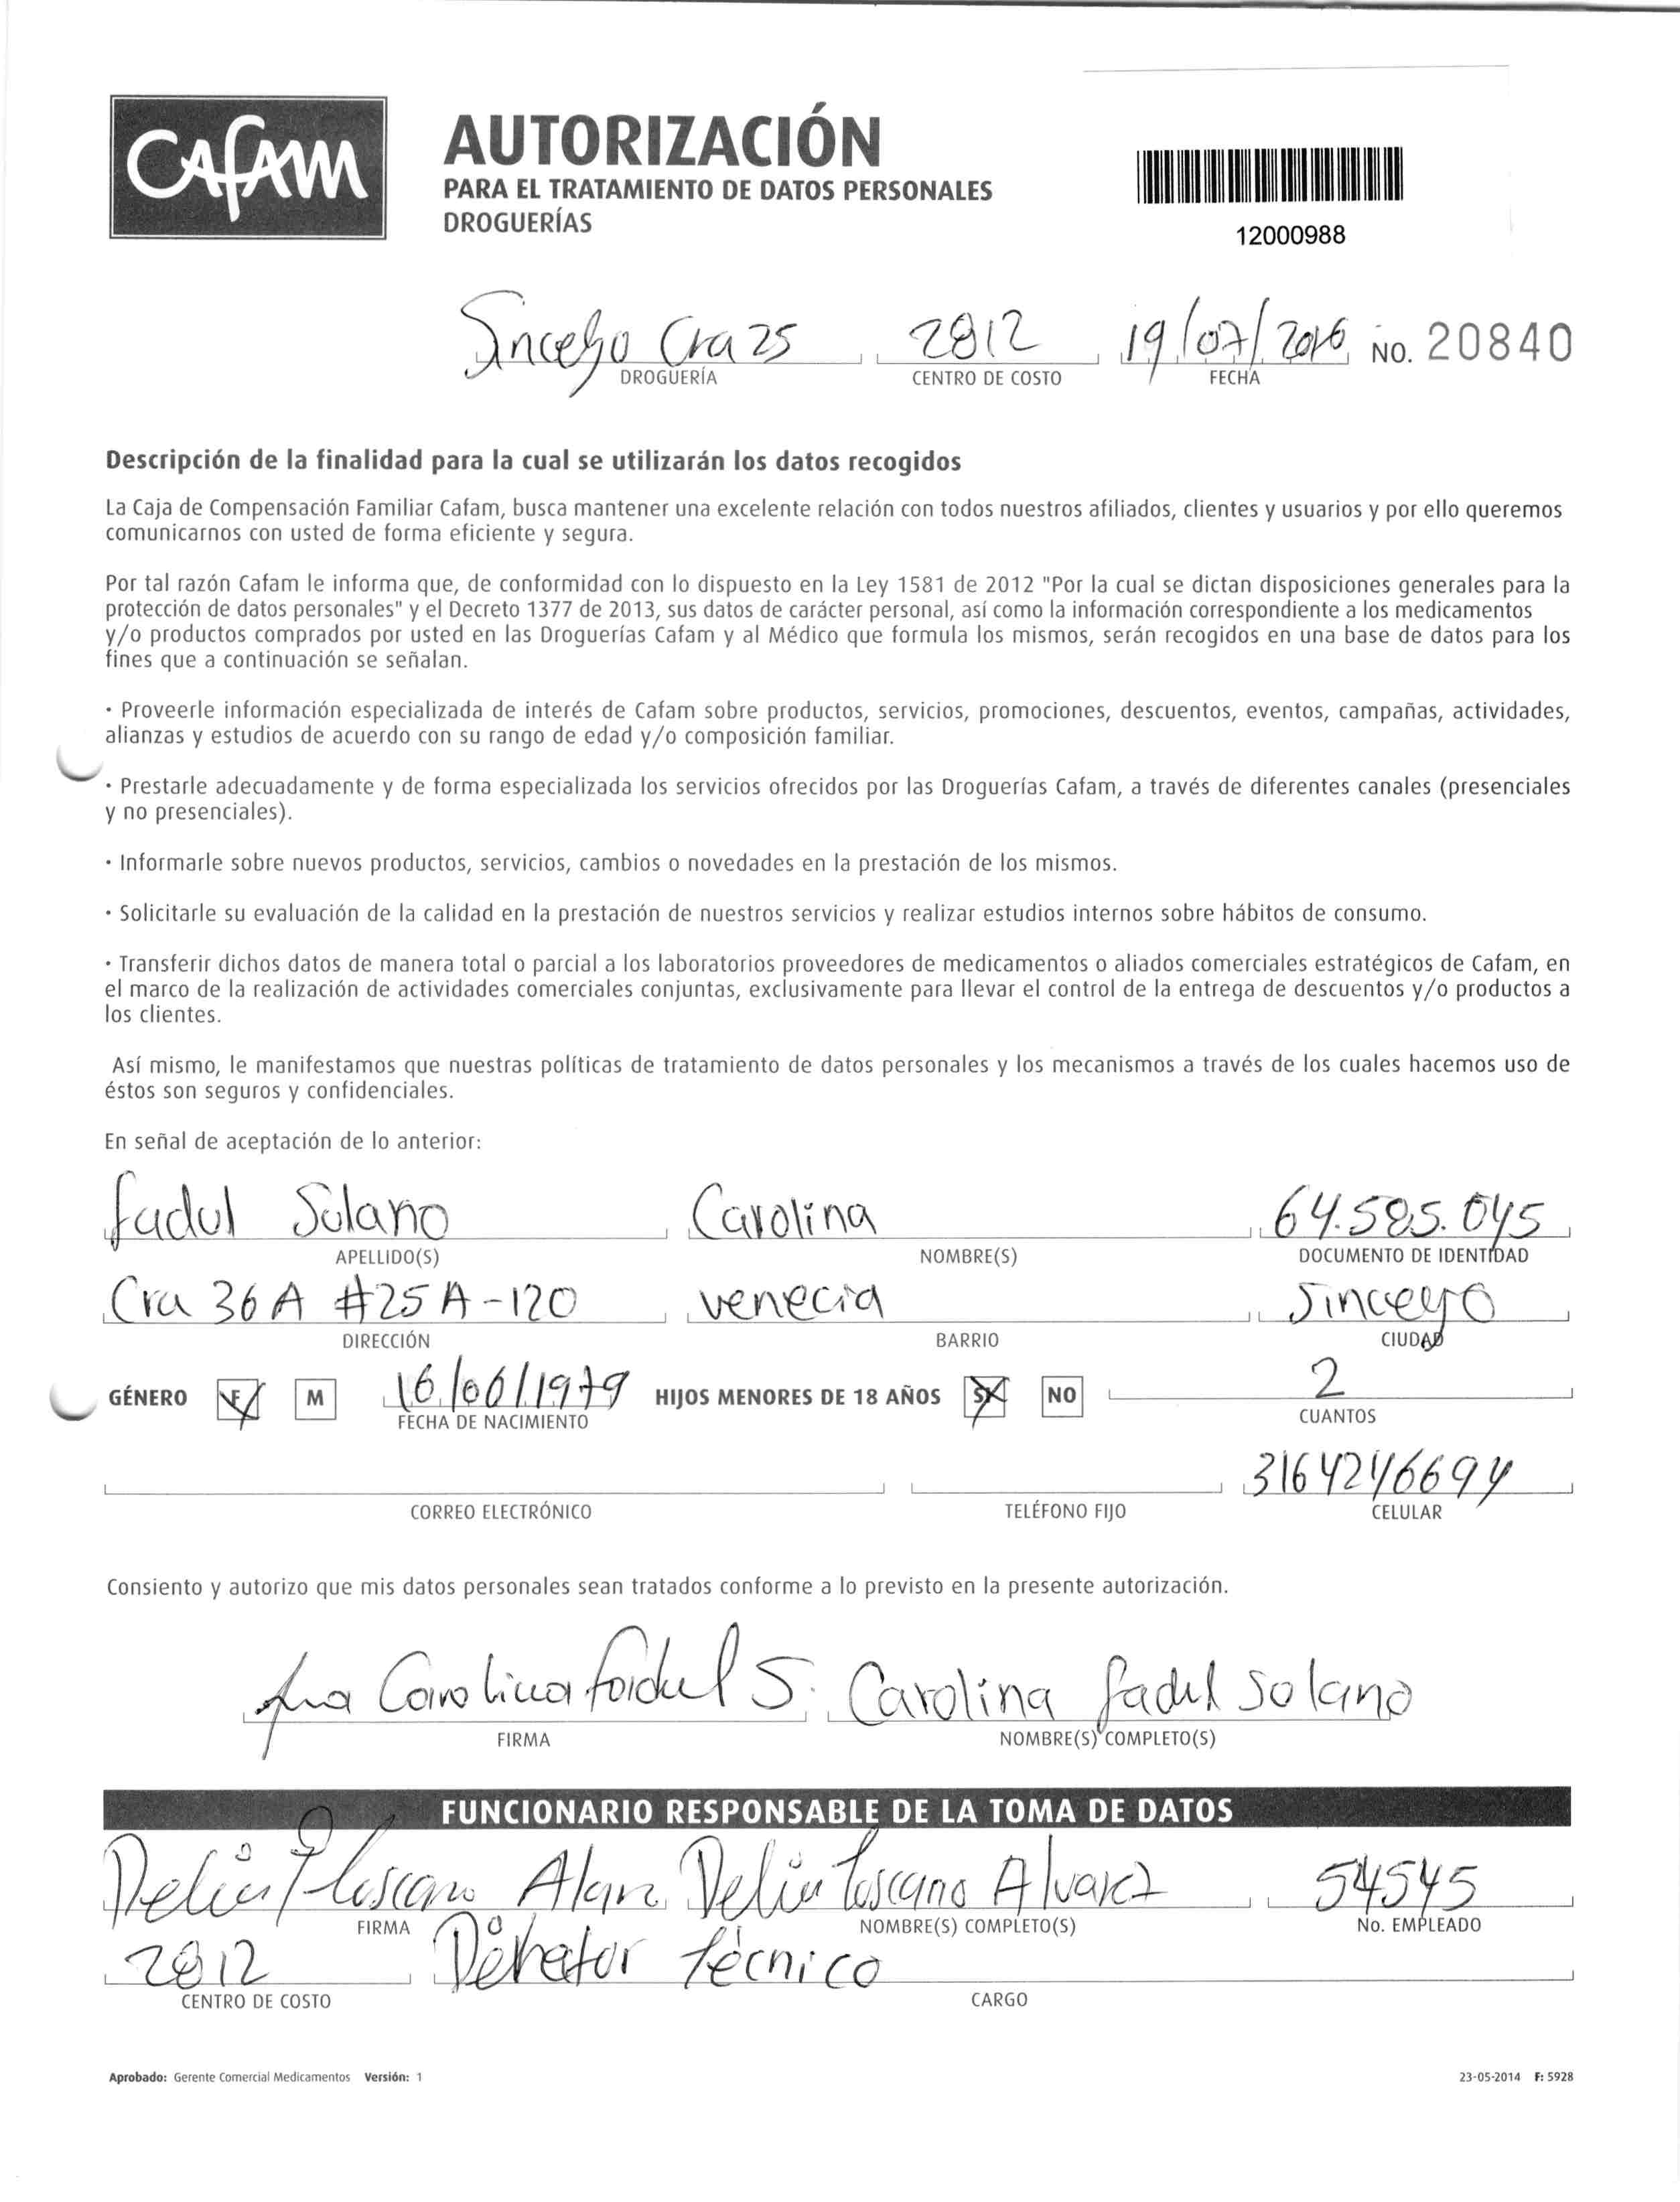 CAFAM
AUTORIZACIÓN
PARA EL TRATAMIENTO DE DATOS PERSONALES
DROGUERÍAS
12000988
Sincelejo Cra 25 2812 19/07/2016 No. 20840
DROGUERÍA CENTRO DE COSTO FECHA
Descripción de la finalidad para la cual se utilizarán los datos recogidos
La Caja de Compensación Familiar Cafam, busca mantener una excelente relación con todos nuestros afiliados, clientes y usuarios y por ello queremos
comunicarnos con usted de forma eficiente y segura.
Por tal razón Cafam le informa que, de conformidad con lo dispuesto en la Ley 1581 de 2012 "Por la cual se dictan disposiciones generales para la
protección de datos personales" y el Decreto 1377 de 2013, sus datos de carácter personal, así como la información correspondiente a los medicamentos
y/o productos comprados por usted en las Droguerías Cafam y al Médico que formula los mismos, serán recogidos en una base de datos para los
fines que a continuación se señalan.
· Proveerle información especializada de interés de Cafam sobre productos, servicios, promociones, descuentos, eventos, campañas, actividades,
alianzas y estudios de acuerdo con su rango de edad y/o composición familiar.
· Prestarle adecuadamente y de forma especializada los servicios ofrecidos por las Droguerías Cafam, a través de diferentes canales (presenciales
y no presenciales).
· Informarle sobre nuevos productos, servicios, cambios o novedades en la prestación de los mismos.
· Solicitarle su evaluación de la calidad en la prestación de nuestros servicios y realizar estudios internos sobre hábitos de consumo.
· Transferir dichos datos de manera total o parcial a los laboratorios proveedores de medicamentos o aliados comerciales estratégicos de Cafam, en
el marco de la realización de actividades comerciales conjuntas, exclusivamente para llevar el control de la entrega de descuentos y/o productos a
los clientes.
Así mismo, le manifestamos que nuestras políticas de tratamiento de datos personales y los mecanismos a través de los cuales hacemos uso de
éstos son seguros y confidenciales.
En señal de aceptación de lo anterior:
fadul Solano Carolina 64.585.045
APELLIDO(S) NOMBRE(S) DOCUMENTO DE IDENTIDAD
Cra 36 A #25 A-120 venecia Sincelejo
DIRECCIÓN BARRIO CIUDAD
GÉNERO F M 16/06/1979 HIJOS MENORES DE 18 AÑOS SI NO 2
FECHA DE NACIMIENTO CUANTOS
3164246694
CORREO ELECTRÓNICO TELÉFONO FIJO CELULAR
Consiento y autorizo que mis datos personales sean tratados conforme a lo previsto en la presente autorización.
Ana Carolina fadul S. Carolina fadul Solano
FIRMA NOMBRE(S) COMPLETO(S)
FUNCIONARIO RESPONSABLE DE LA TOMA DE DATOS
Toscano Toscano Alvarez 54545
FIRMA NOMBRE(S) COMPLETO(S) No. EMPLEADO
2812 técnico
CENTRO DE COSTO CARGO
Aprobado: Gerente Comercial Medicamentos Versión: 1 23-05-2014 F: 5928